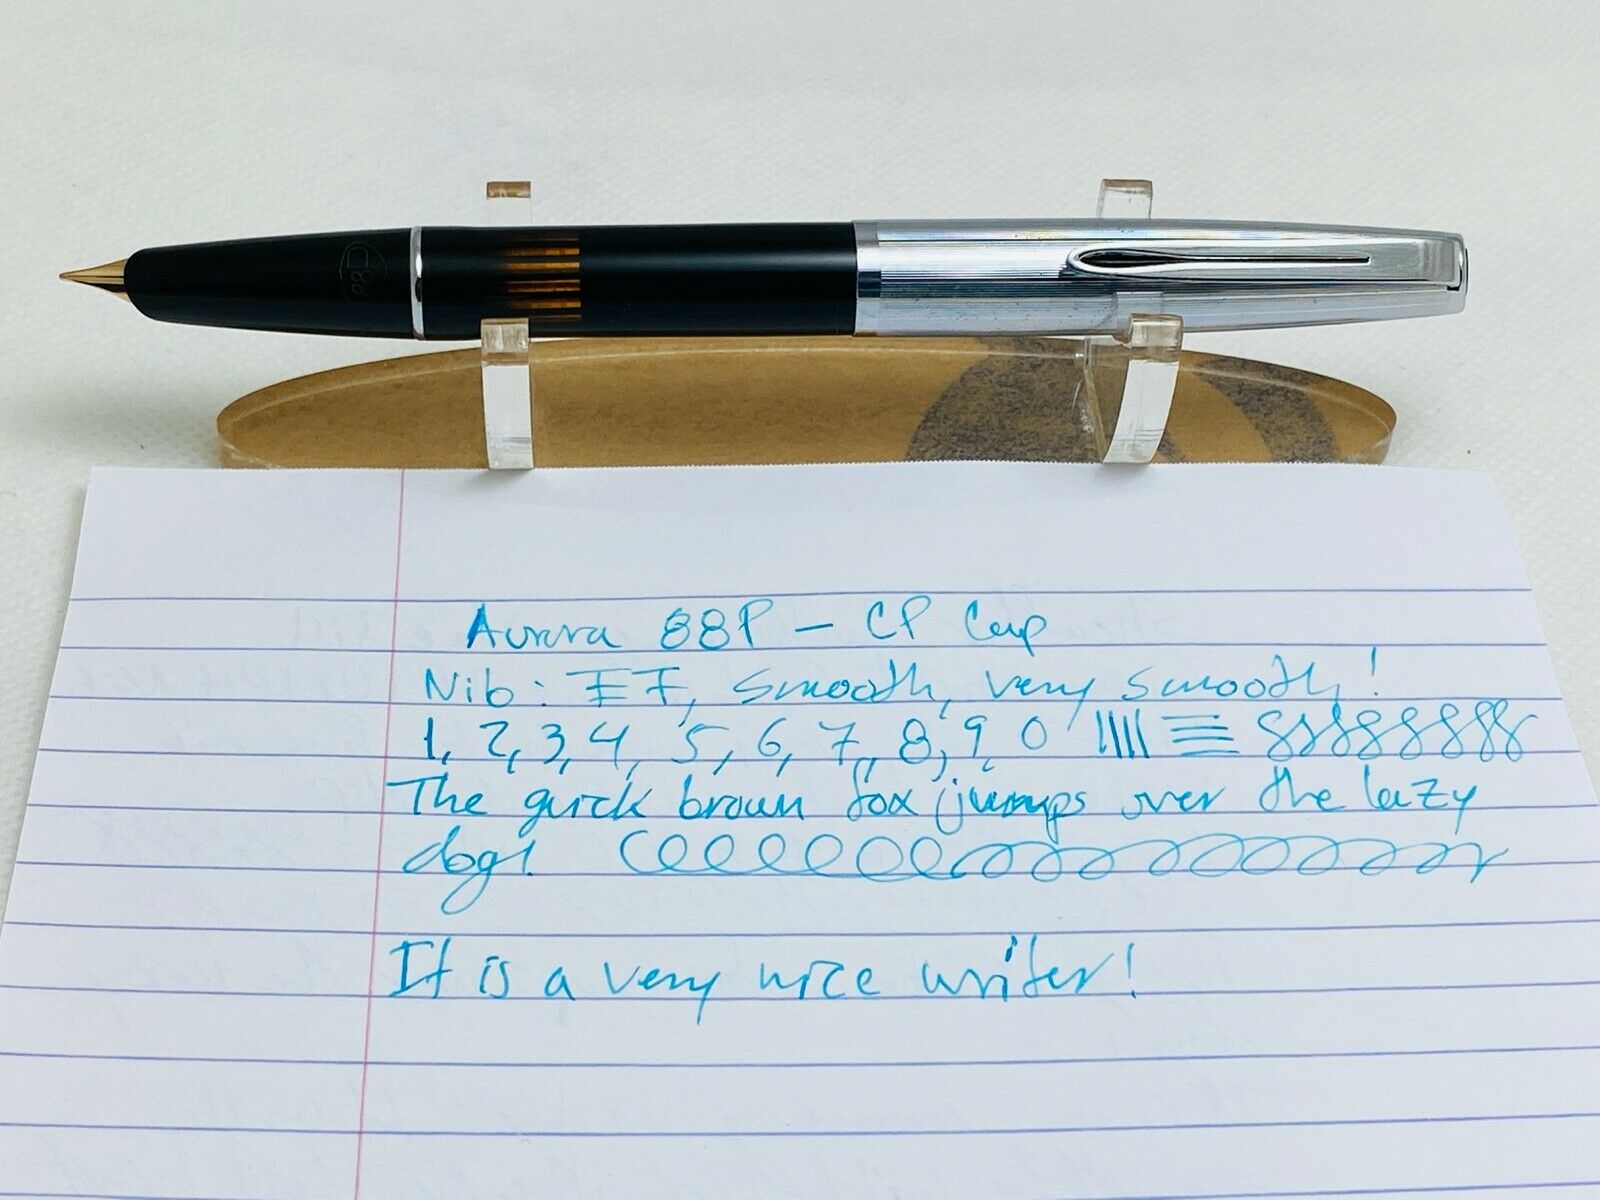 Aurora 88P - CP Cap
Nib: EF, smooth, very smooth!
1, 2, 3, 4, 5, 6, 7, 8, 9, 0
The quick brown fox jumps over the lazy
dog!
It is a very nice writer!